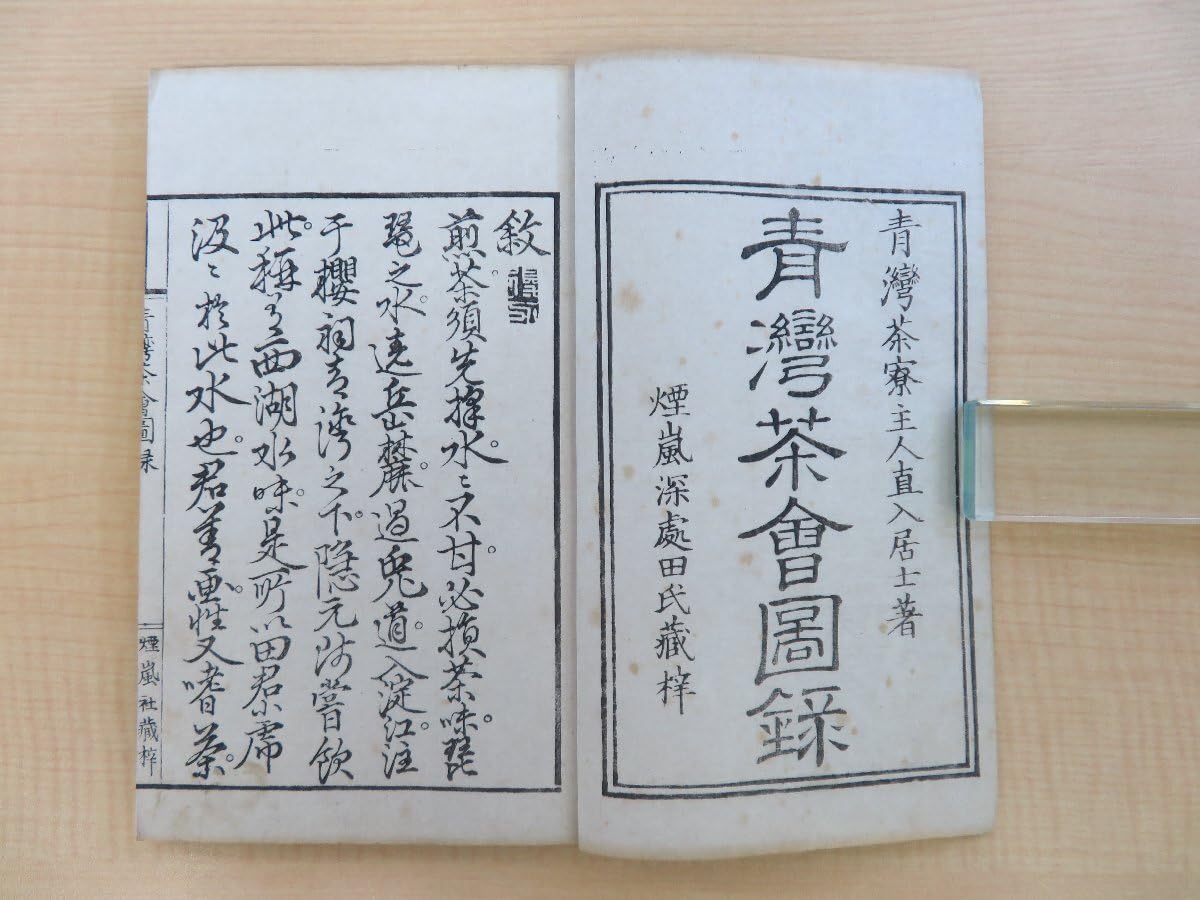 青灣茶寮主人直入居士著
青灣茶會圖錄
煙嵐深處田氏藏梓
敘
煎茶須先擇水。〻不甘。必損茶味。琵
琶之水。遶岳山麓。過兎道。入淀江。注
于櫻祠青灣之下。隱元師嘗飲
此。稱有西湖水味。是所以田君常
汲〻於此水也。君善画。性又嗜茶。
青灣茶會圖録
煙嵐社藏梓